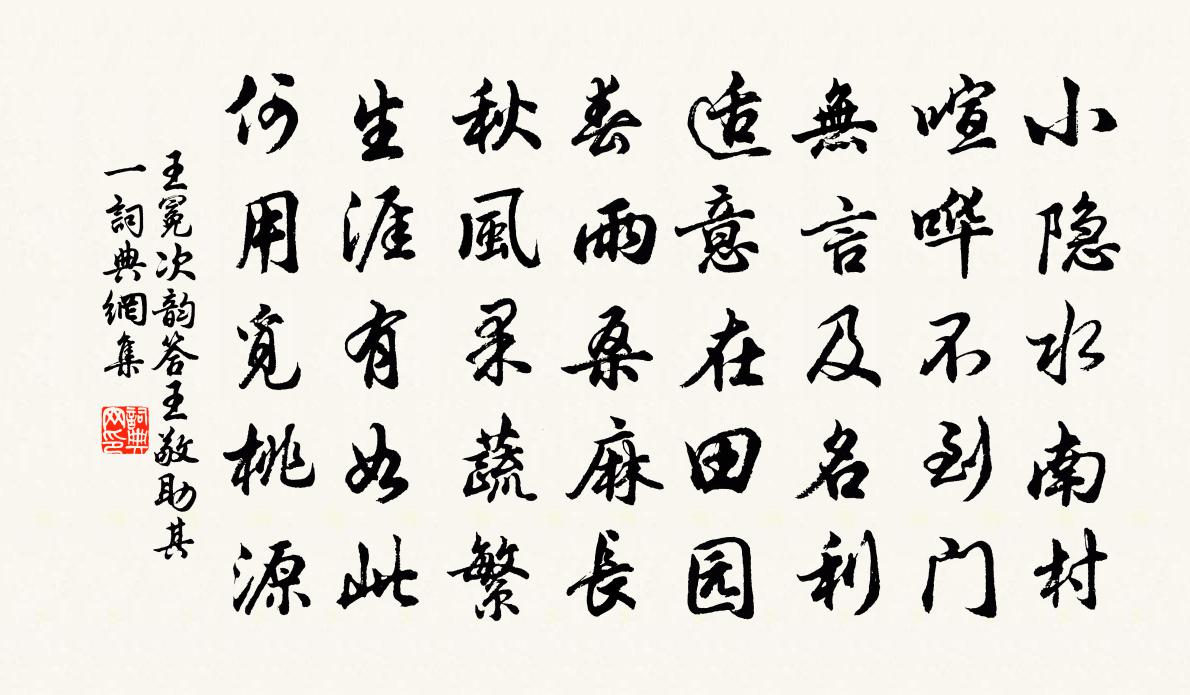 小隐水南村
喧哗不到门
無言及名利
适意在田园
春雨桑麻長
秋風果蔬繁
生涯有如此
何用覓桃源
王冕次韵答王敬助其
一詞典網集
詞典
网印